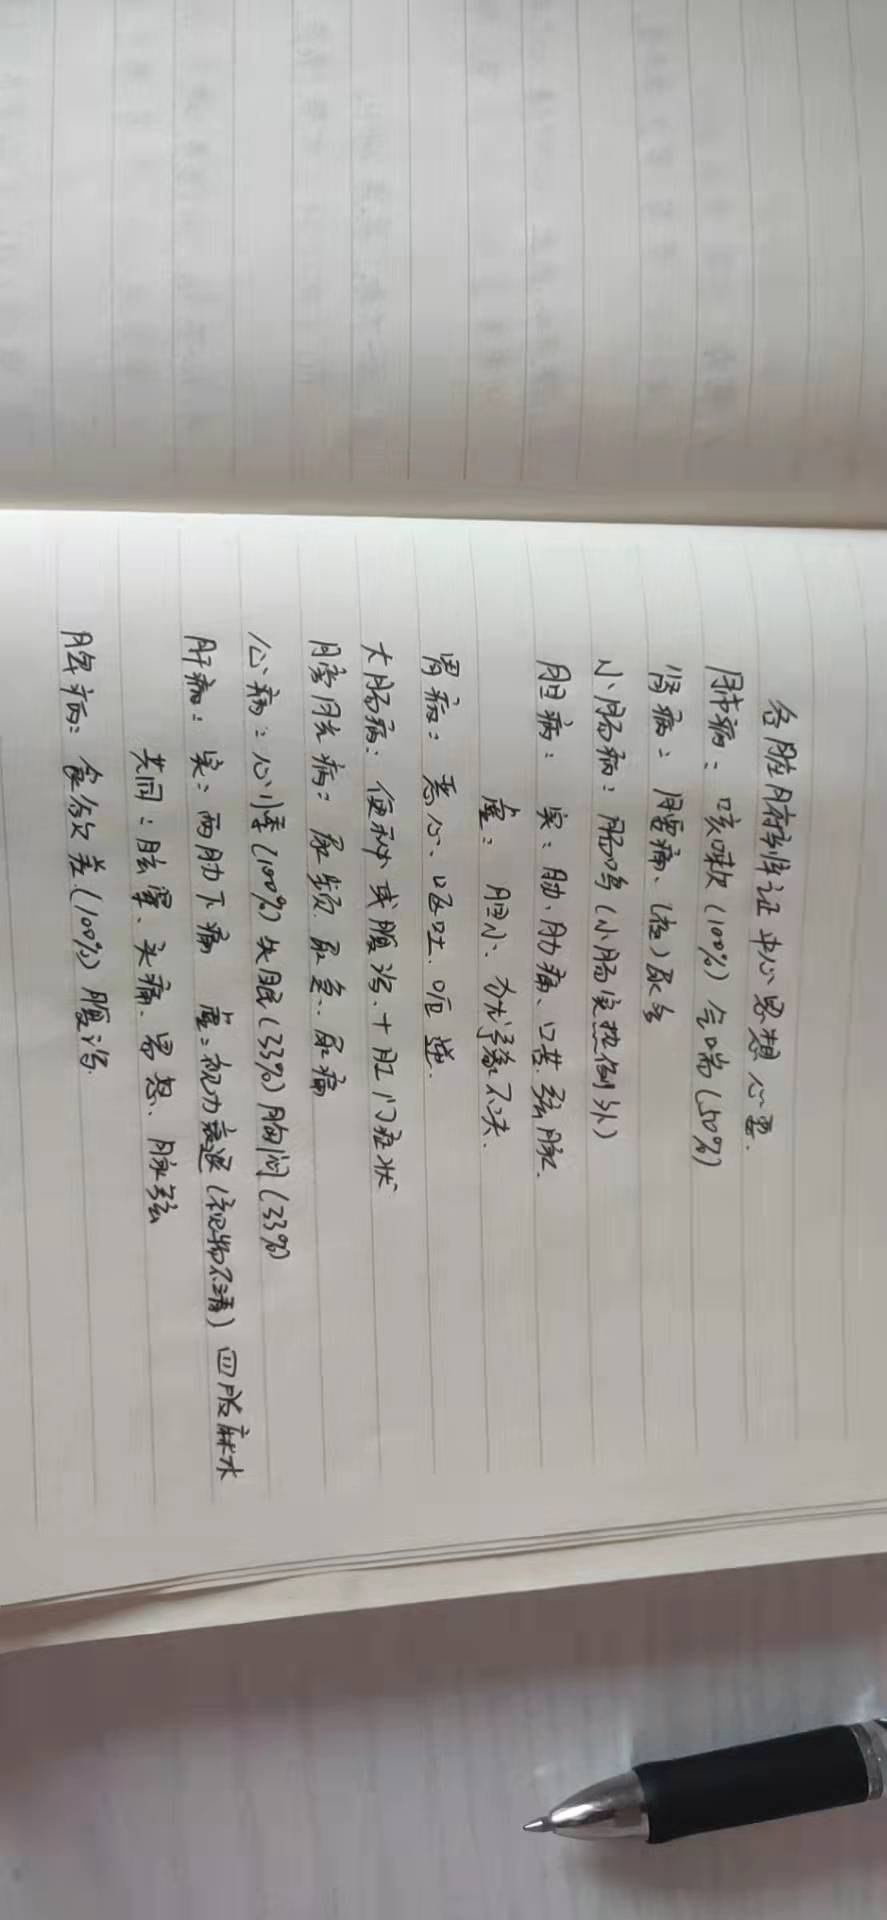 各脏腑辨证中心思想心要.
肺病：咳嗽(100%) 气喘(50%)
肾病：腰痛、(夜)尿多
小肠病：肠鸣(小肠实热例外)
胆病：实：胁肋痛、口苦弦脉.
虚：胆小、犹豫不决.
胃病：恶心、呕吐、呃逆.
大肠病：便秘或腹泻、+肛门症状
膀胱病：尿频、尿急、尿痛
心病：心悸(100%)失眠(33%)胸闷(33%)
肝病：实：两肋下痛 虚：视力衰退(视物不清)四肢麻木
共同：眩晕、头痛、易怒、脉弦
脾病：食欲差(100%)腹泻.